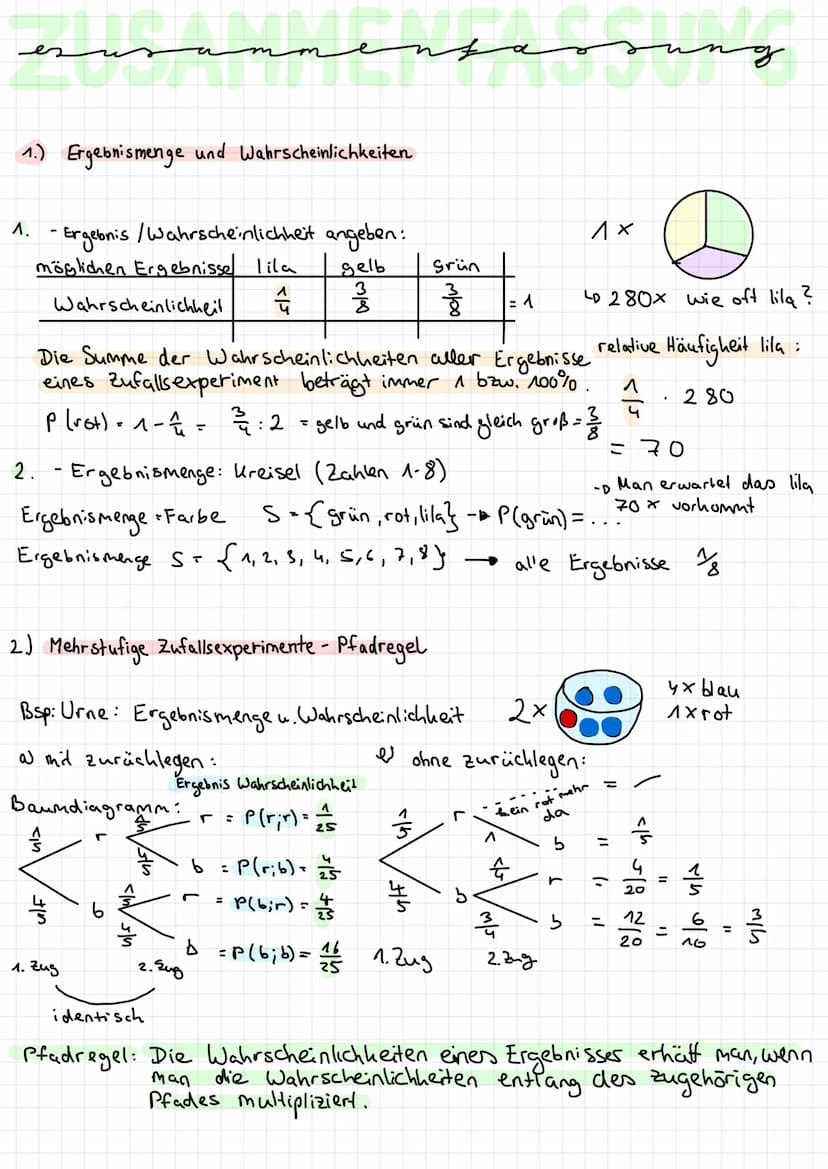 ZUSAMMENFASSUNG
zusammenfassung
1.) Ergebnismenge und Wahrscheinlichkeiten
1. - Ergebnis / Wahrscheinlichkeit angeben:
1x
möglichen Ergebnisse lila gelb grün
Wahrscheinlichkeit 1/4 3/8 3/8 = 1
↳ 280x wie oft lila?
Die Summe der Wahrscheinlichkeiten aller Ergebnisse
eines Zufallsexperiment beträgt immer 1 bzw. 100%.
relative Häufigkeit lila:
1/4 · 280
= 70
P(rot) = 1 - 1/4 = 3/4 : 2 = gelb und grün sind gleich groß = 3/8
→ Man erwartet das lila
70x vorkommt
2. - Ergebnismenge: Kreisel (Zahlen 1-8)
Ergebnismenge = Farbe S = {grün, rot, lila} → P(grün) = ...
Ergebnismenge S = {1, 2, 3, 4, 5, 6, 7, 8} → alle Ergebnisse 1/8
2.) Mehrstufige Zufallsexperimente - Pfadregel
Bsp: Urne: Ergebnismenge u. Wahrscheinlichkeit 2x
4x blau
1x rot
a) mit zurücklegen:
Ergebnis Wahrscheinlichkeit
Baumdiagramm:
1/5 r 1/5 r = P(r;r) = 1/25
4/5 b = P(r;b) = 4/25
4/5 b 1/5 r = P(b;r) = 4/25
4/5 b = P(b;b) = 16/25
1. Zug 2. Zug
identisch
ohne zurücklegen:
1/5 r kein rot mehr da = –
1 b = 1/5
4/5 b 1/4 r = 4/20 = 1/5
3/4 b = 12/20 = 6/10 = 3/5
1. Zug 2. Zug
Pfadregel: Die Wahrscheinlichkeiten eines Ergebnisses erhält man, wenn
man die Wahrscheinlichkeiten entlang des zugehörigen
Pfades multipliziert.